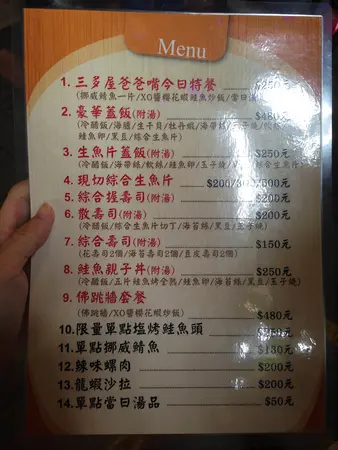 Menu
1. 三多屋爸爸嘴今日特餐 $250元
(挪威鯖魚一片/XO醬櫻花蝦鮭魚炒飯/當日湯
2. 豪華蓋飯(附湯) $480元
(冷醋飯/海膽/生干貝/牡丹蝦/海帶絲/玉子燒/
鮭魚卵/黑豆/綜合生魚片)
3. 生魚片蓋飯(附湯) $250元
(冷醋飯/海帶絲/軟絲/鮭魚卵/玉子燒/綜合生魚片)
4. 現切綜合生魚片 $200/300/500元
5. 綜合握壽司(附湯) $200元
6. 散壽司(附湯) $200元
(冷醋飯/綜合生魚片切丁/海苔絲/黑豆/玉子燒)
7. 綜合壽司(附湯) $150元
(花壽司2個/海苔壽司2個/豆皮壽司2個)
8. 鮭魚親子丼(附湯) $250元
(冷醋飯/五片鮭魚烤全熟/鮭魚卵/海苔絲/黑豆/玉子燒)
9. 佛跳牆套餐
(佛跳牆/XO醬櫻花蝦炒飯) $480元
10. 限量單點塩烤鮭魚頭 $200元
11. 單點挪威鯖魚 $130元
12. 辣味螺肉 $200元
13. 龍蝦沙拉 $200元
14. 單點當日湯品 $50元